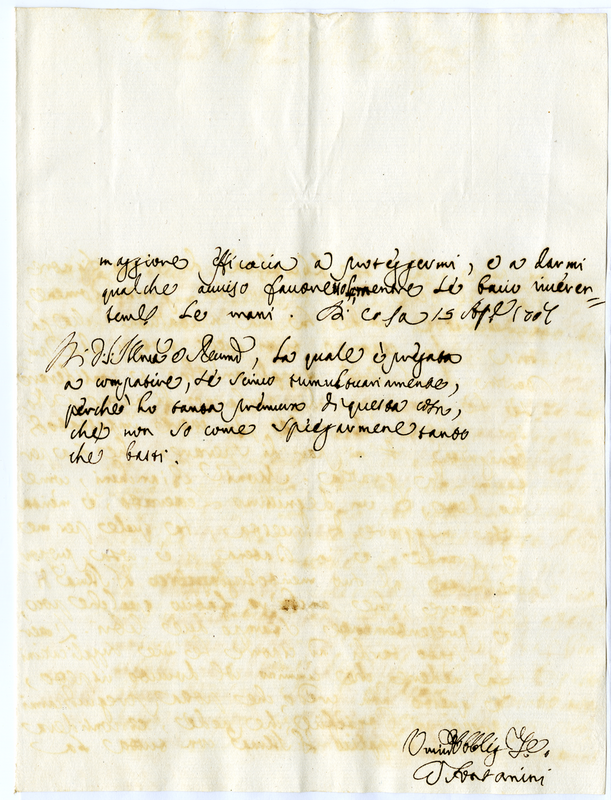 maggiore efficacia a proteggermi, e a darmi
qualche avviso favorevolmente le bacio riveren=
temt.e le mani. Di casa 15 Apr.e 1701
Di V. S. Illma e Reuma, la quale è pregata
a compatire, se scrivo tumultuariamente,
perche ho tanta premura di questa cosa,
che non so come spiegarmene tanto
che basti.
Obblig
G Fontanini